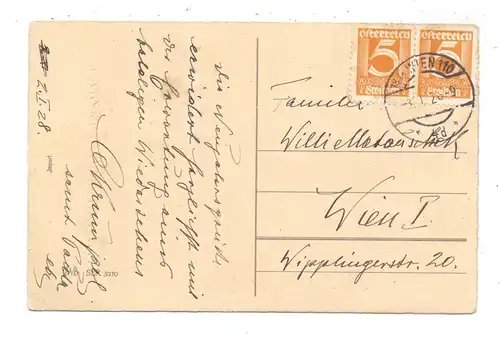 2. I. 28.
Die Neujahrsgrüße
erwidert herzlichst mit
der Hoffnung eines
baldigen Wiedersehens
samt
Österreich
5
Österreich
5
110
Familie
Willi Matouschek
Wien I.
Wipplingerstr. 20.